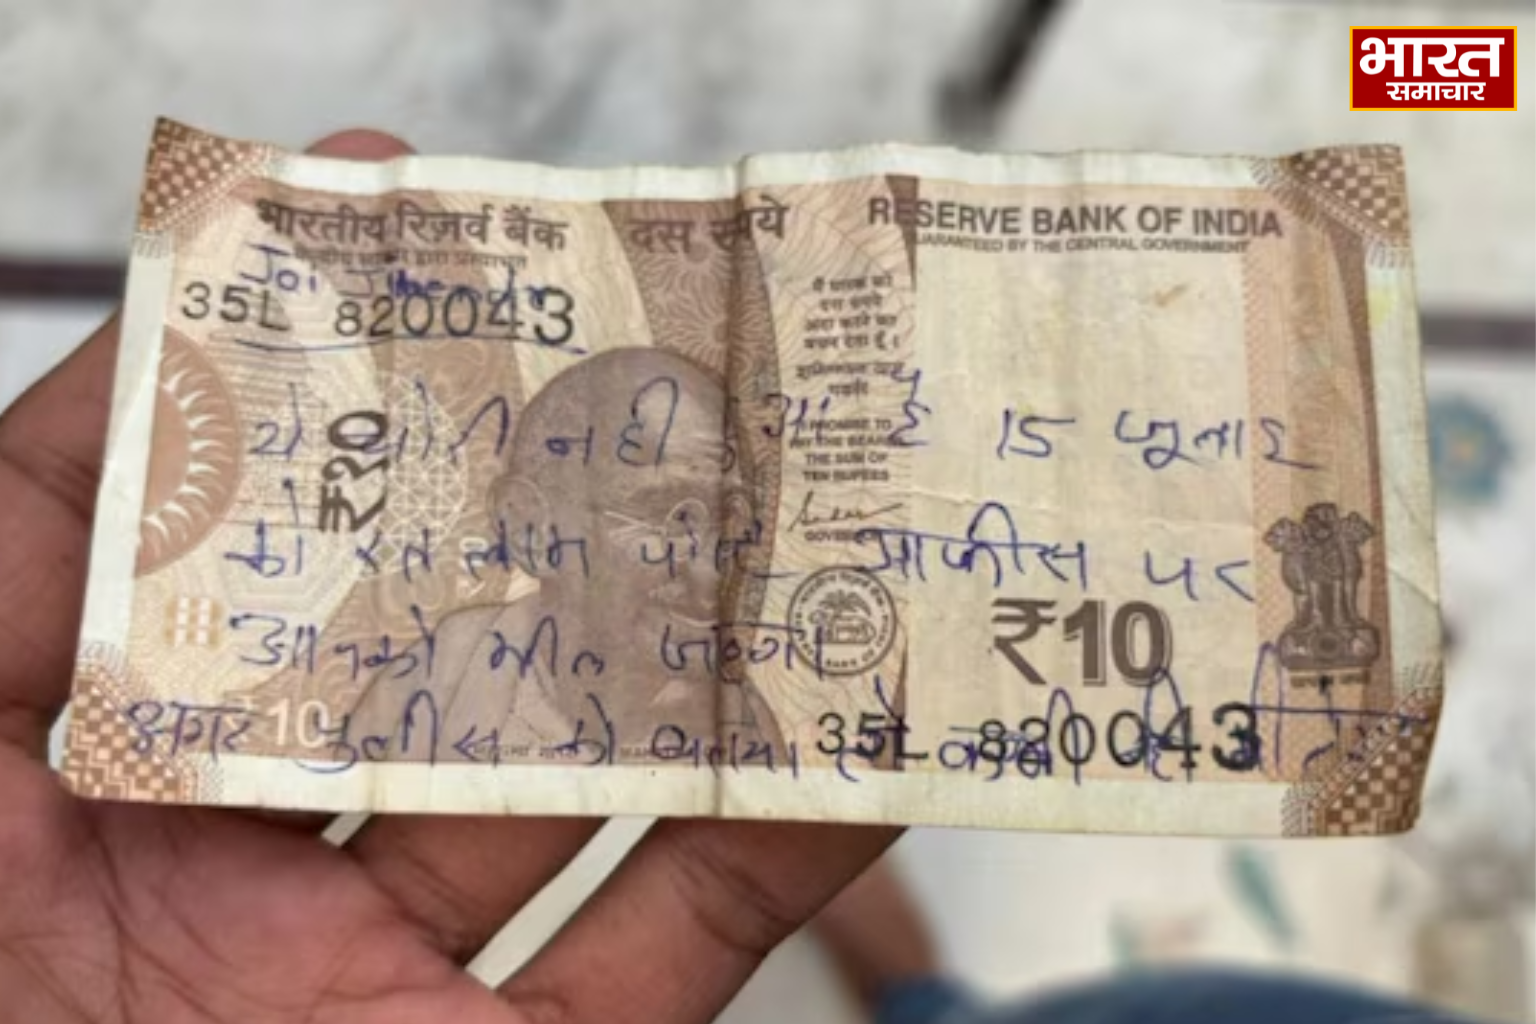 भारत
समाचार
भारतीय रिज़र्व बैंक दस रुपये RESERVE BANK OF INDIA
GUARANTEED BY THE CENTRAL GOVERNMENT
Jai
35L 820043
ये चोरी नही है 15 जुलाइ
₹१०
I PROMISE TO
PAY THE BEARER
THE SUM OF
TEN RUPEES
को रतलाम पोस्ट आफीस पर
GOVERNOR
आपको मील
₹10
अगर पुलीस को बताया तो कभी नही मीलेगा
10
35L 820043